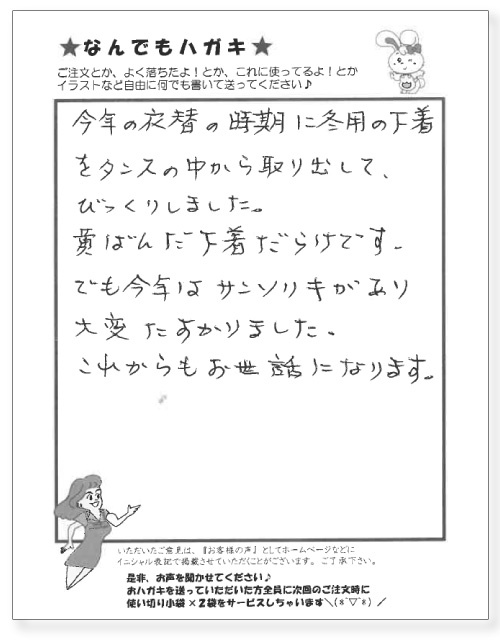 ★なんでもハガキ★
ご注文とか、よく落ちたよ！とか、これに使ってるよ！とか
イラストなど自由に何でも書いて送ってください♪
今年の衣替の時期に冬用の下着
をタンスの中から取り出して、
びっくりしました。
黄ばんだ下着だらけです。
でも今年はサンソリキがあり
大変たすかりました。
これからもお世話になります。
いただいたご意見は、『お客様の声』としてホームページなどに
イニシャル表記で掲載させていただくことがございます。ご了承下さい。
是非、お声を聞かせてください♪
おハガキを送っていただいた方全員に次回のご注文時に
使い切り小袋×2袋をサービスしちゃいます＼(*ˆ▽ˆ*)／